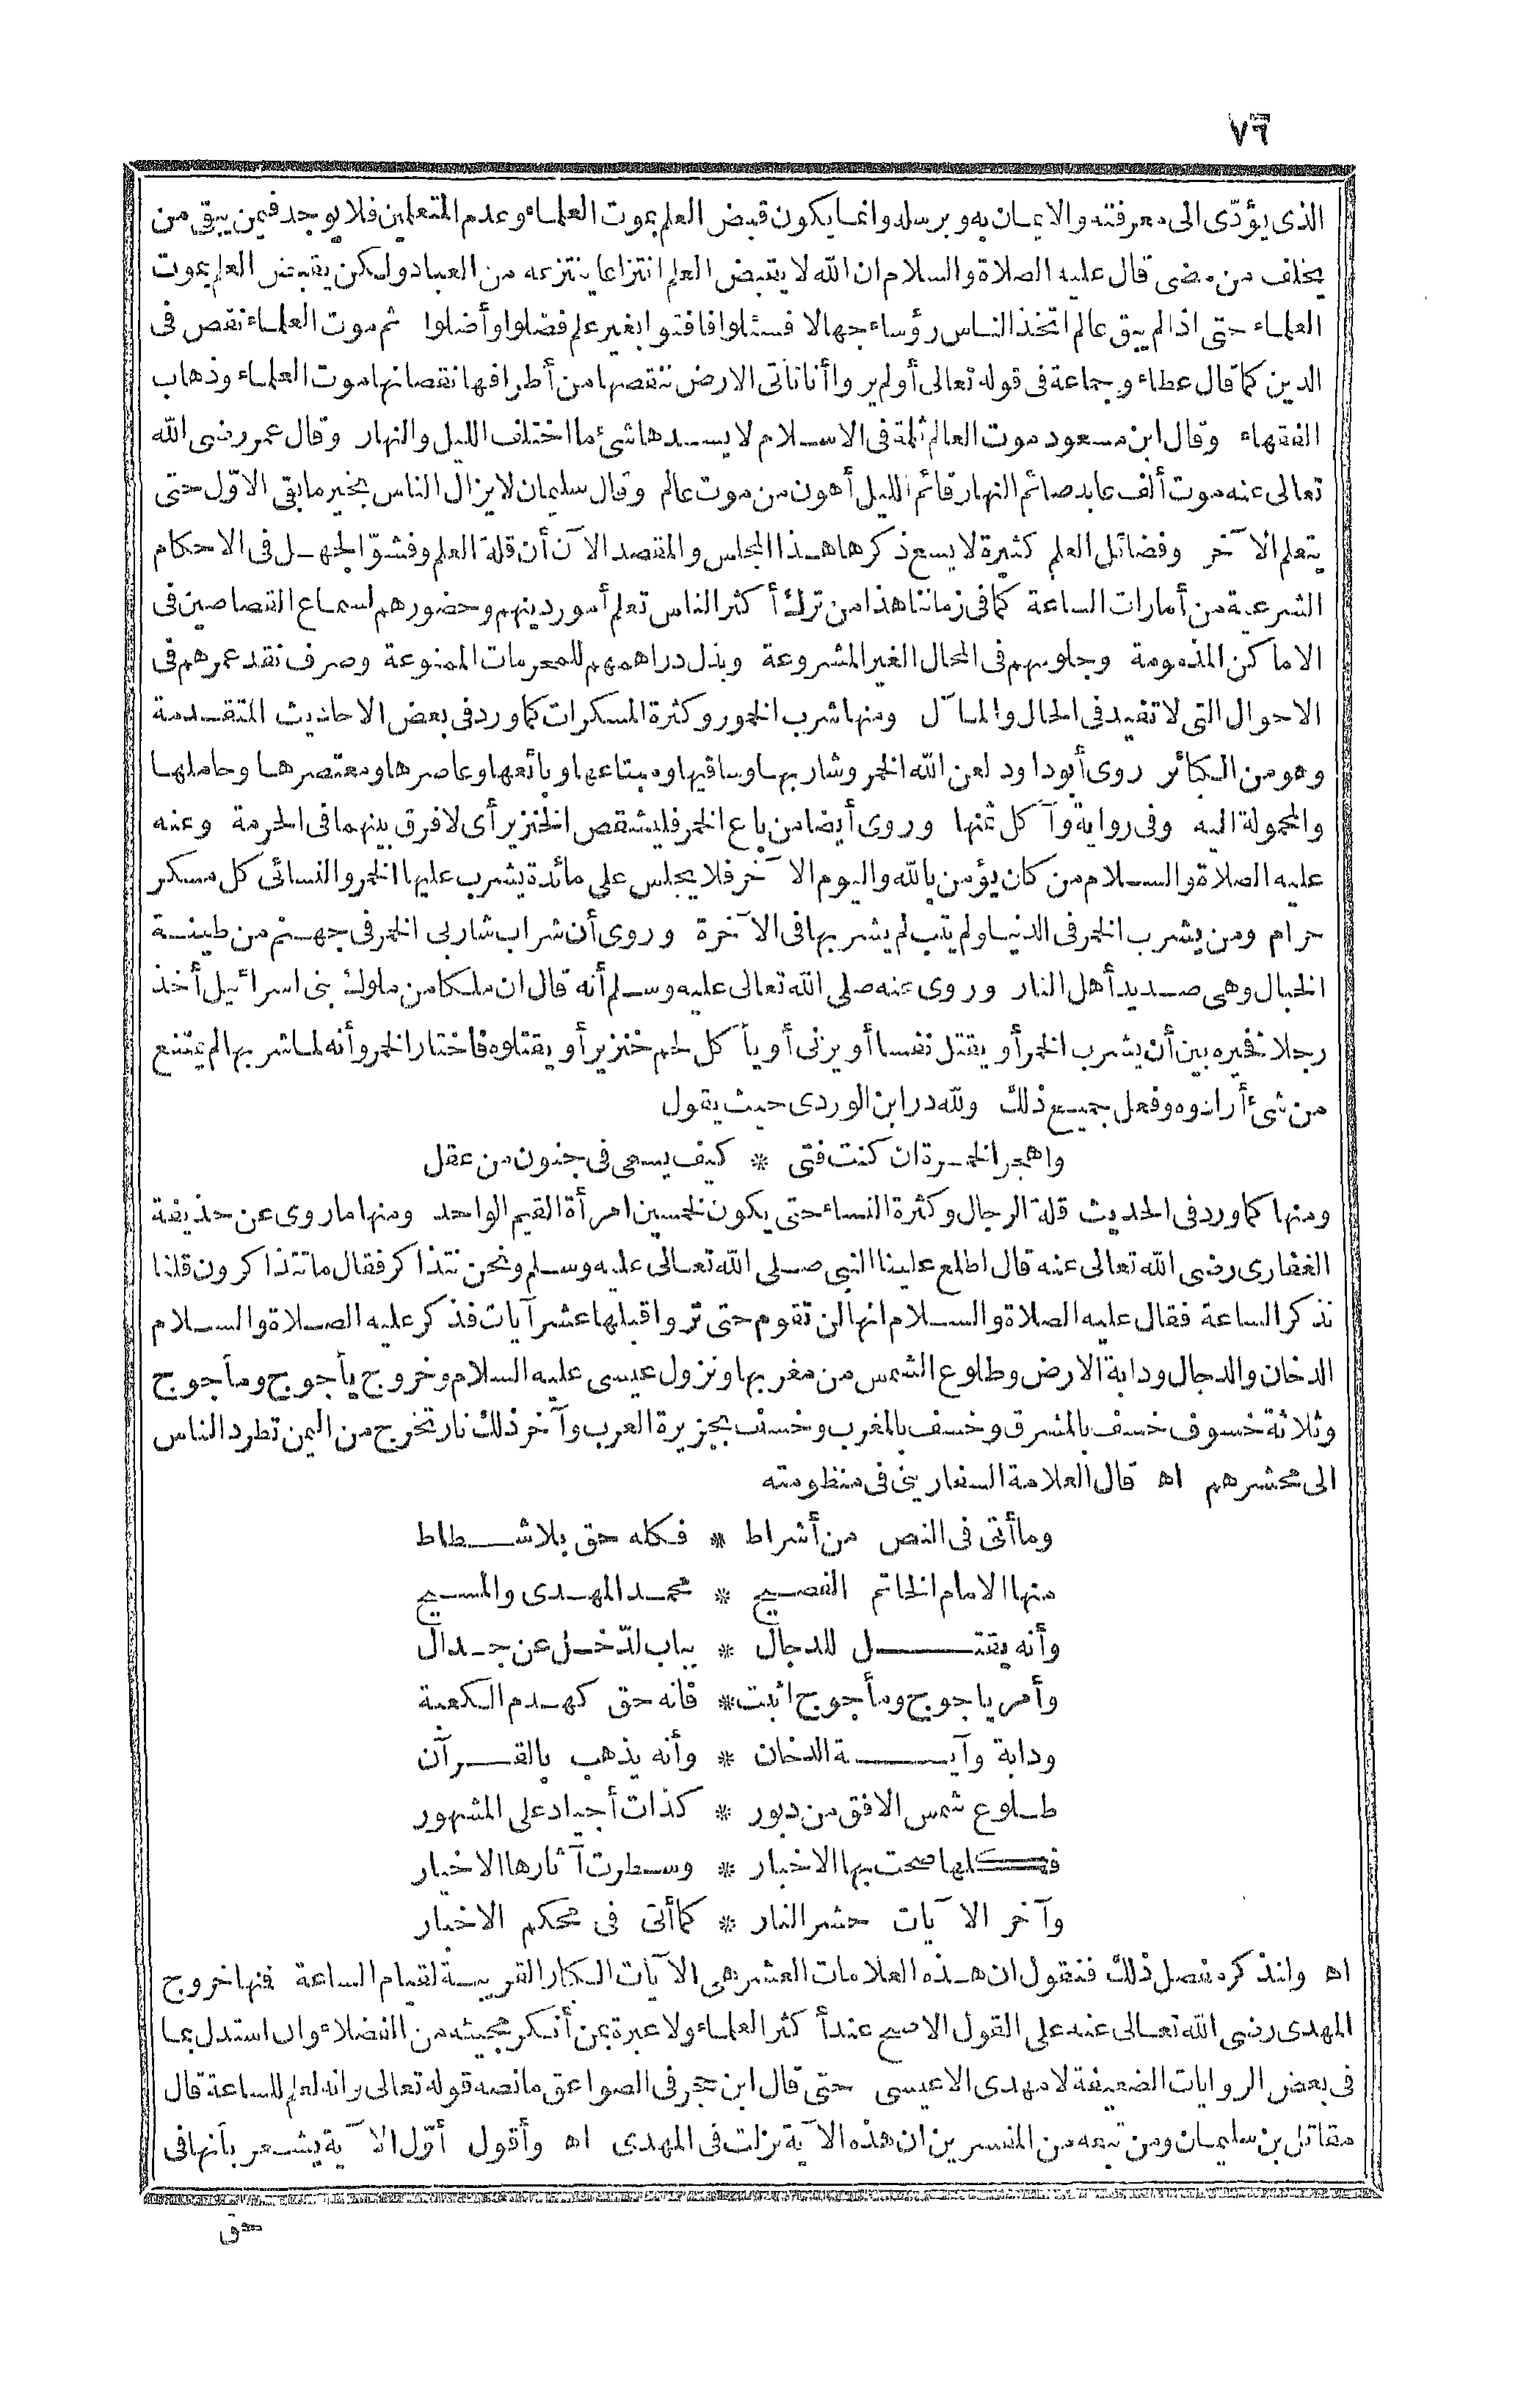 ٧٦
الذى يؤدّى الى معرفته والايمان به وبرسله وانما يكون قبض العلم بموت العلماء وعدم المتعلمين فلا يوجد فيمن يبقى من
يخلف من مضى قال عليه الصلاة والسلام ان الله لا يقبض العلم انتزاعا ينتزعه من العباد ولكن يقبض العلم بموت
العلماء حتى اذا لم يبق عالم اتخذ الناس رؤساء جهالا فسئلوا فافتوا بغير علم فضلوا وأضلوا ثم موت العلماء نقص فى
الدين كما قال عطاء وجماعة فى قوله تعالى أولم يروا أنا نأتى الارض ننقصها من أطرافها نقصانها موت العلماء وذهاب
الفقهاء وقال ابن مسعود موت العالم ثلمة فى الاسلام لا يسدها شئ ما اختلف الليل والنهار وقال عمر رضى الله
تعالى عنه موت ألف عابد صائم النهار قائم الليل أهون من موت عالم وقال سليمان لا يزال الناس بخير ما بقى الاوّل حتى
يتعلم الآخر وفضائل العلم كثيرة لا يسع ذكرها هذا المجلس والمقصد الآن أن قلة العلم وفشوّ الجهل فى الاحكام
الشرعية من أمارات الساعة كما فى زماننا هذا من ترك أكثر الناس تعلم أمور دينهم وحضورهم لسماع القصاصين فى
الاماكن المذمومة وجلوسهم فى المحال الغير المشروعة وبذل دراهمهم للمحرمات الممنوعة وصرف نقد عمرهم فى
الاحوال التى لا تفيد فى الحال والمآل ومنها شرب الخمور وكثرة المسكرات كما ورد فى بعض الاحاديث المتقدمة
وهو من الكبائر روى أبو داود لعن الله الخمر وشاربها وساقيها ومبتاعها وبائعها وعاصرها ومعتصرها وحاملها
والمحمولة اليه وفى رواية وآكل ثمنها وروى أيضا من باع الخمر فليشقص الخنزير أى لا فرق بينهما فى الحرمة وعنه
عليه الصلاة والسلام من كان يؤمن بالله واليوم الآخر فلا يجلس على مائدة يشرب عليها الخمر والنسائى كل مسكر
حرام ومن يشرب الخمر فى الدنيا ولم يتب لم يشربها فى الآخرة وروى أن شراب شاربى الخمر فى جهنم من طينة
الخبال وهى صديد أهل النار وروى عنه صلى الله تعالى عليه وسلم أنه قال ان ملكا من ملوك بنى اسرائيل أخذ
رجلا فخيره بين أن يشرب الخمر أو يقتل نفسا أو يزنى أو يأكل لحم خنزير أو يقتلوه فاختار الخمر وأنه لما شربها لم يمتنع
من شئ أرادوه وفعل جميع ذلك ولله در ابن الوردى حيث يقول
واهجر الخمرة ان كنت فتى * كيف يسعى فى جنون من عقل
ومنها كما ورد فى الحديث قلة الرجال وكثرة النساء حتى يكون لخمسين امرأة القيم الواحد ومنها ما روى عن حذيفة
الغفارى رضى الله تعالى عنه قال اطلع علينا النبى صلى الله تعالى عليه وسلم ونحن نتذاكر فقال ما تتذاكرون قلنا
نذكر الساعة فقال عليه الصلاة والسلام انها لن تقوم حتى تروا قبلها عشر آيات فذكر عليه الصلاة والسلام
الدخان والدجال ودابة الارض وطلوع الشمس من مغربها ونزول عيسى عليه السلام وخروج يأجوج ومأجوج
وثلاثة خسوف خسف بالمشرق وخسف بالمغرب وخسف بجزيرة العرب وآخر ذلك نار تخرج من اليمن تطرد الناس
الى محشرهم اه قال العلامة السفارينى فى منظومته
وما أتى فى النص من أشراط * فكله حق بلا شطاط
منها الامام الخاتم الفصيح * محمد المهدى والمسيح
وأنه يقتل للدجال * بباب لدّ خل عن جدال
وأمر ياجوج ومأجوج اثبت * فانه حق كهدم الكعبة
ودابة وآية الدخان * وأنه يذهب بالقرآن
طلوع شمس الافق من دبور * كذات أجياد على المشهور
فكلها صحت بها الاخبار * وسطرت آثارها الاخيار
وآخر الآيات حشر النار * كما أتى فى محكم الاخبار
اه ولنذكره مفصل ذلك فنقول ان هذه العلامات العشر هى الآيات الكبار القريبة لقيام الساعة فنها خروج
المهدى رضى الله تعالى عنه على القول الاصح عند أكثر العلماء ولا عبرة بمن أنكر مجيئه من الفضلاء وان استدل بما
فى بعض الروايات الضعيفة لا مهدى الا عيسى حتى قال ابن حجر فى الصواعق ما نصه قوله تعالى وانه لعلم للساعة قال
مقاتل بن سليمان ومن تبعه من المفسرين ان هذه الآية نزلت فى المهدى اه وأقول أوّل الآية يشعر بأنها فى
حق